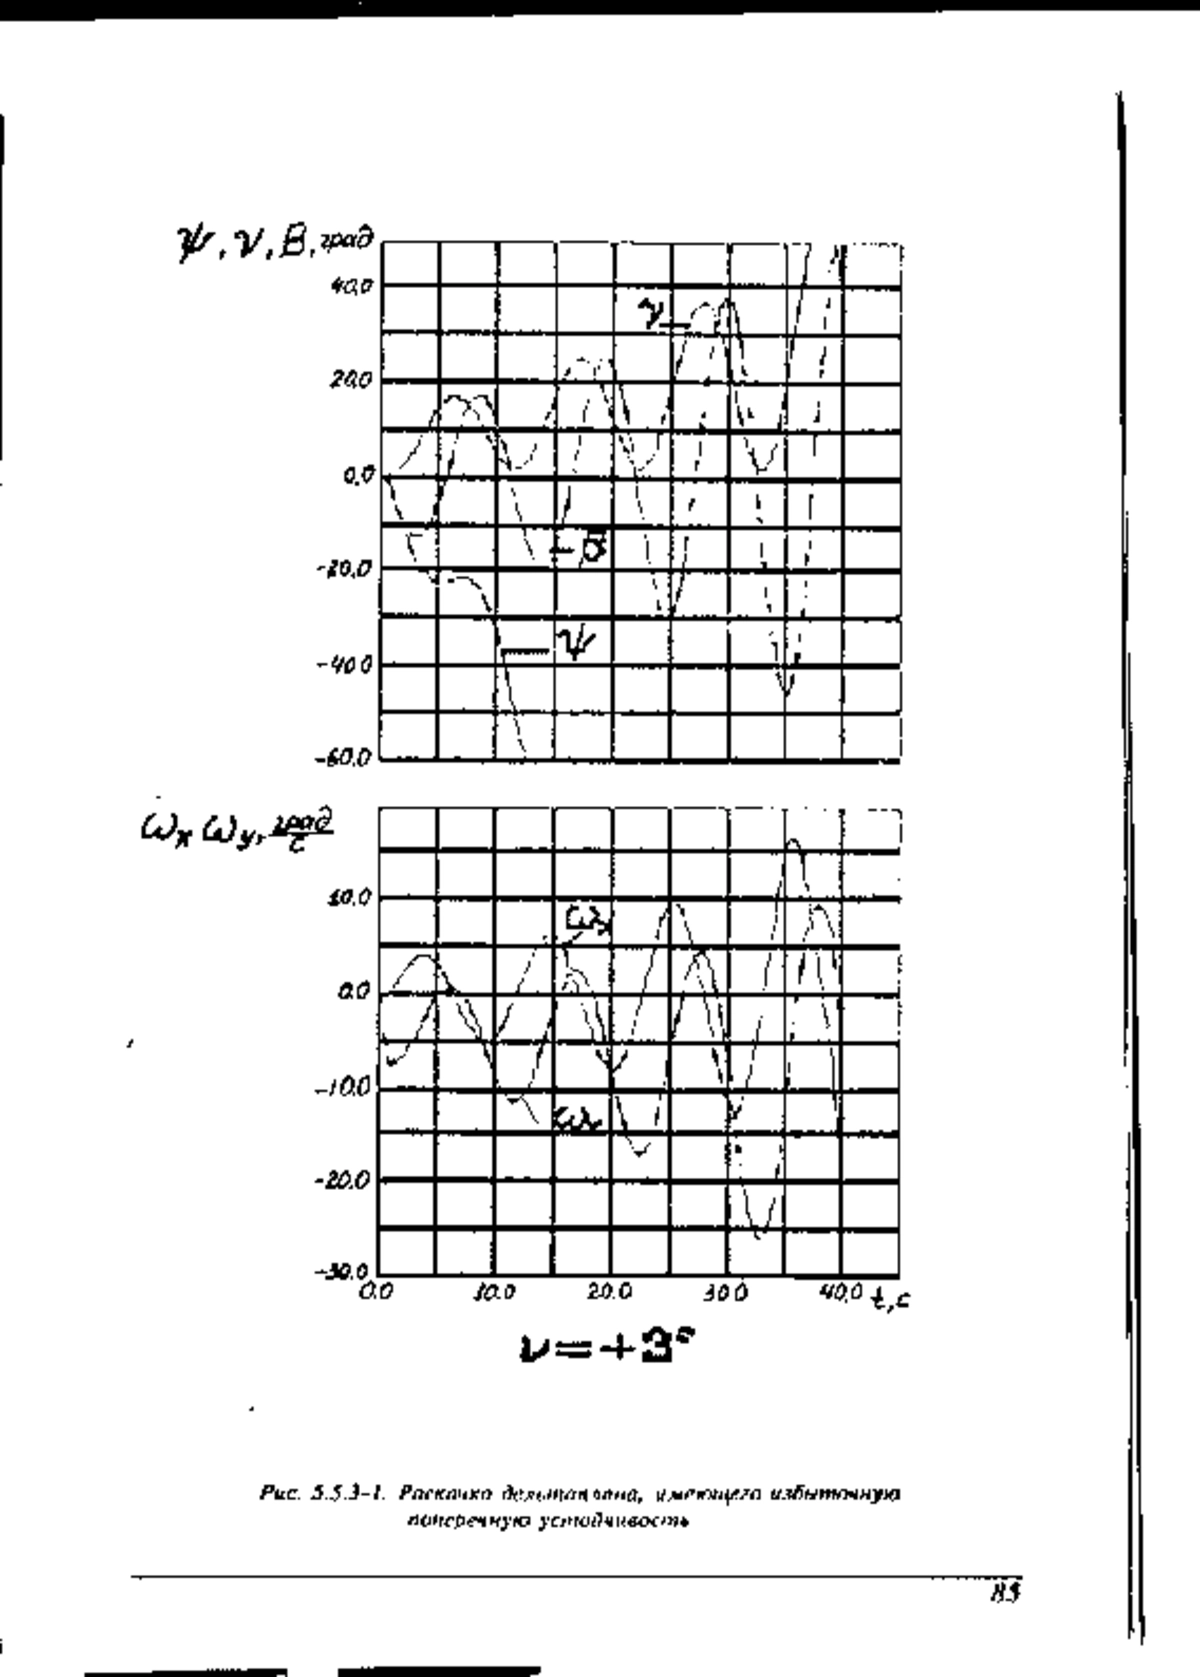 ψ, ν, B, град
40,0
20,0
0,0
-20,0
-40 0
-60,0
γ
ψ
ωx ωy, град/с
10.0
0.0
-10.0
-20.0
-30.0
0.0 10.0 20.0 30 0 40,0 t,c
ν=+3°
Рис. 5.5.3-1. Раскачка дельтаплана, имеющего избыточную
поперечную устойчивость
85